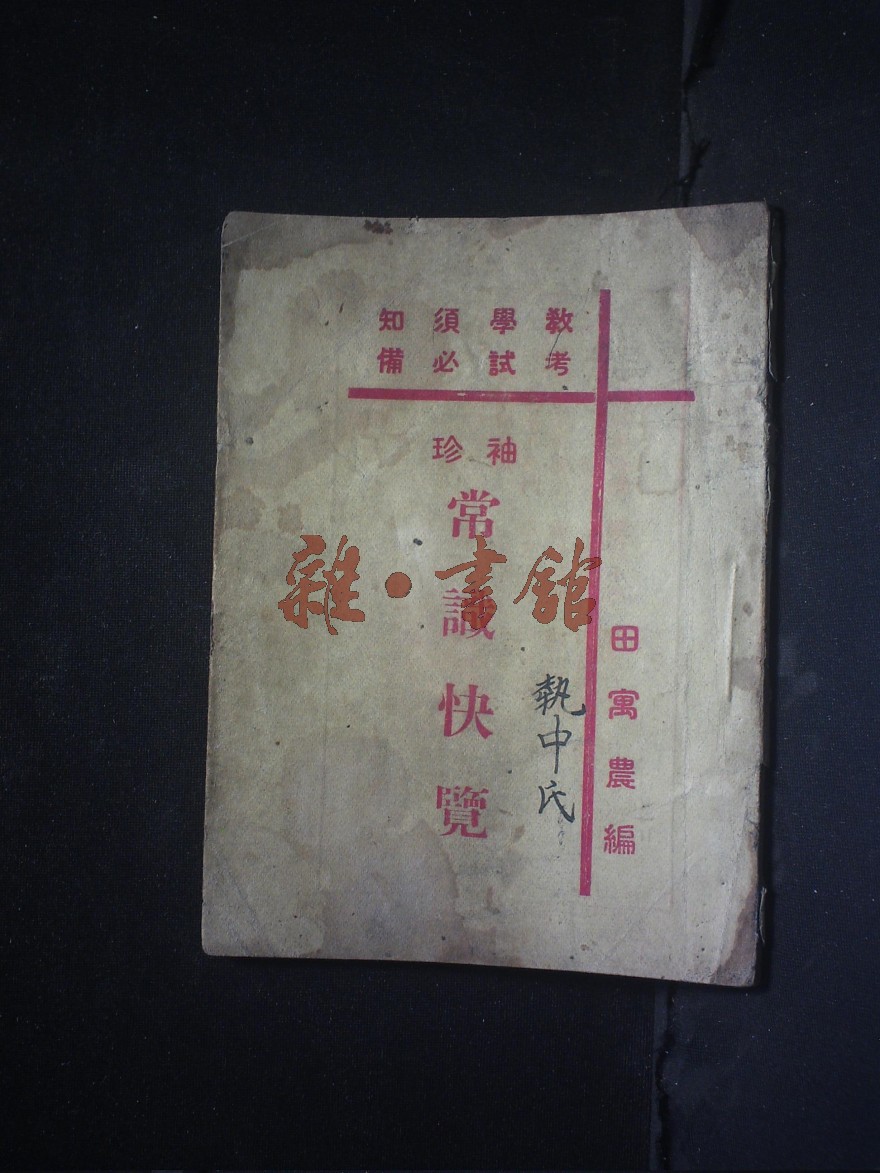 教學須知
考試必備
袖珍
常識快覽
田寓農編
執中氏
雜·書館